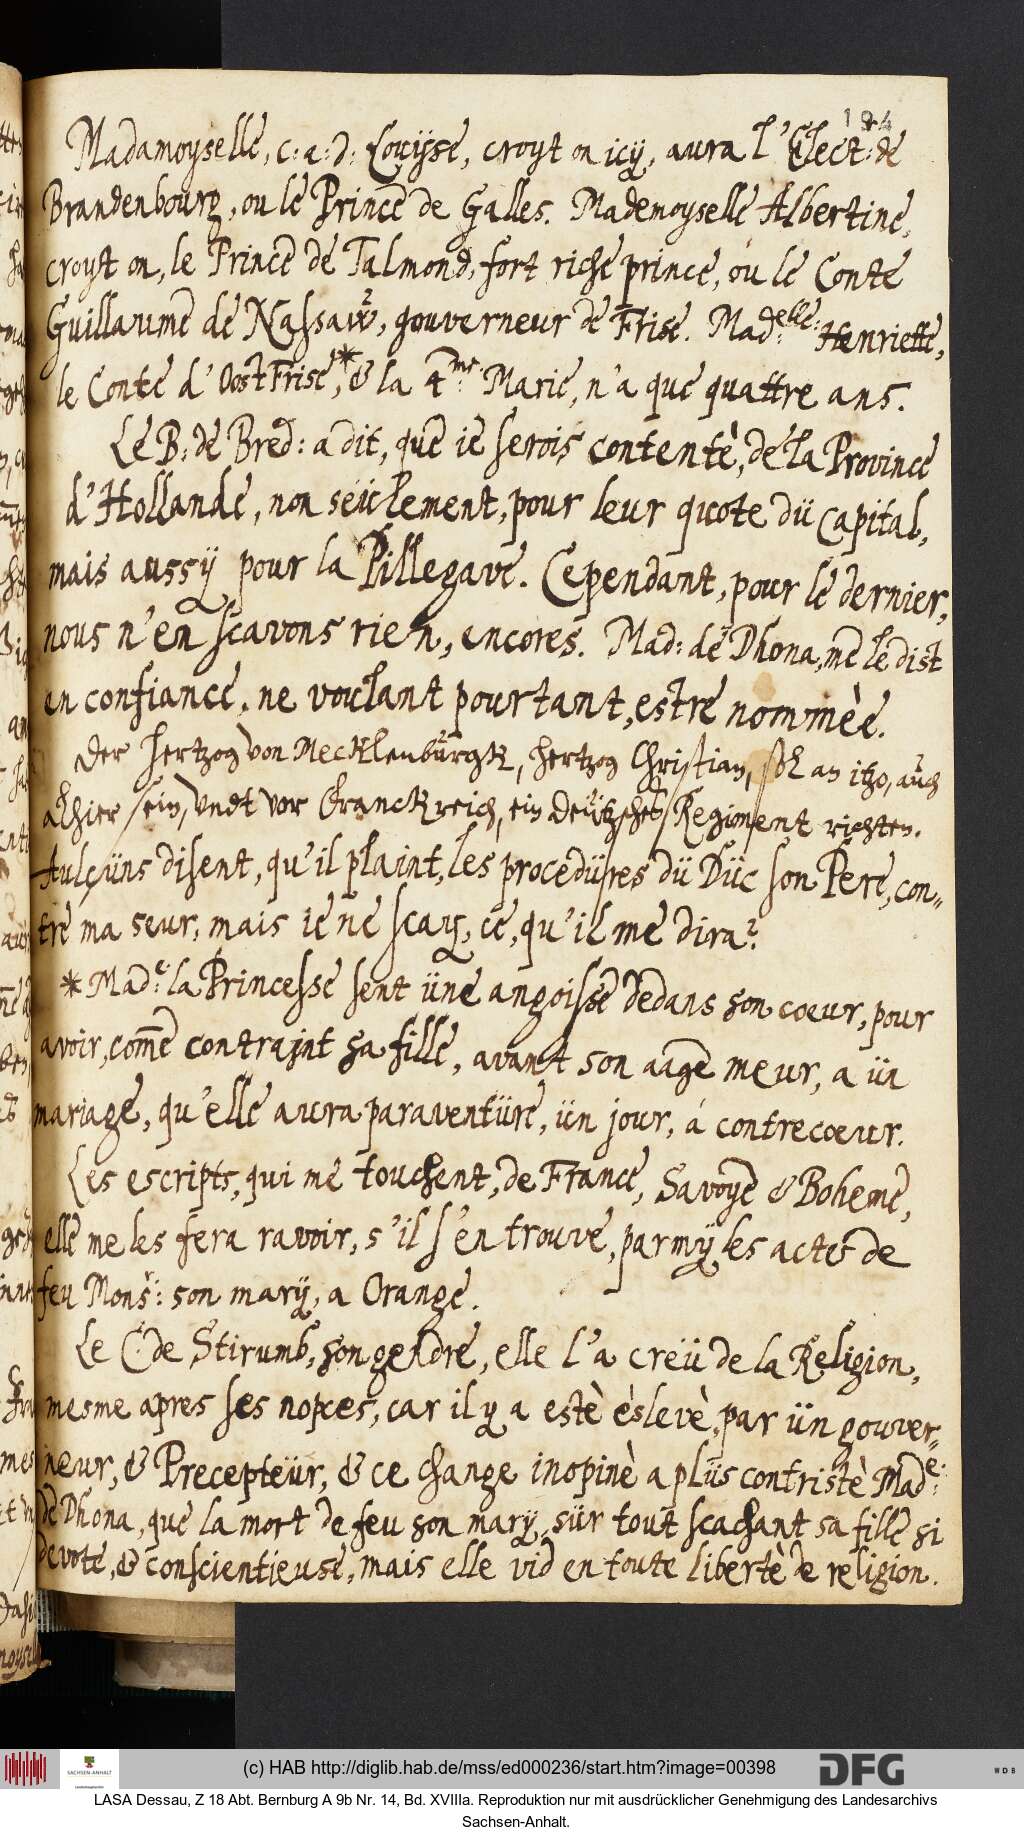 194
Madamoyselle, c: a: d: Louÿse, croyt on icÿ, aura l'Elect: de
Brandenbourg, ou le Prince de Galles. Mademoyselle Albertine,
croyt on, le Prince de Talmond, fort riche prince, ou le Conte
Guillaume de Nassaw, gouverneur de Frise. Mad:elle: Henriette,
le Conte d'OostFrise,* & la 4me: Marie, n'a que quattre ans.
Le B: de Bred: a dit, que ie serois contentè, de la Province
d'Hollande, non seülement, pour leur quote dü capital,
mais aussÿ pour la Pillegave. Cependant, pour le dernier,
nous n'en scavons rien, encores. Mad: de Dhona, me le dist
en confiance, ne voulant pourtant, estre nommèe.
Der hertzog von Mecklenburgk, hertzog Christian, soll an itzo, auch
alhier sein, undt vor Franckreich, ein deützsches Regiment richten.
Aulcüns disent, qu'il plaint, les procedüres dü Düc son Pere, con-
tre ma seur, mais ie ne scay, ce, qu'il me dira?
* Mad:e la Princesse sent üne angoisse dedans son coeur, pour
avoir, com̃e contrajnt sa fille, avant son aage meur, a ün
mariage, qu'elle aura paraventüre, ün jour, á contrecoeur.
Les escripts, qui me touchent, de France, Savoye & Boheme,
elle me les fera ravoir, s'il s'en trouve, parmÿ les actes de
feu Monsr: son marÿ, a Orange.
Le C. de Stirumb, son gendre, elle l'a creü de la Religion,
mesme apres ses nopces, car il y a estè éslevè, par ün gouver-
neur, & Precepteür, & ce change inopinè a plüs contristè Made:
de Dhona, que la mort de feu son marÿ, sür tout scachant sa fille si
devote, & conscientieuse, mais elle vid en toute libertè de religion.
(c) HAB http://diglib.hab.de/mss/ed000236/start.htm?image=00398
SACHSEN-ANHALT
DFG
WDB
LASA Dessau, Z 18 Abt. Bernburg A 9b Nr. 14, Bd. XVIIIa. Reproduktion nur mit ausdrücklicher Genehmigung des Landesarchivs
Sachsen-Anhalt.